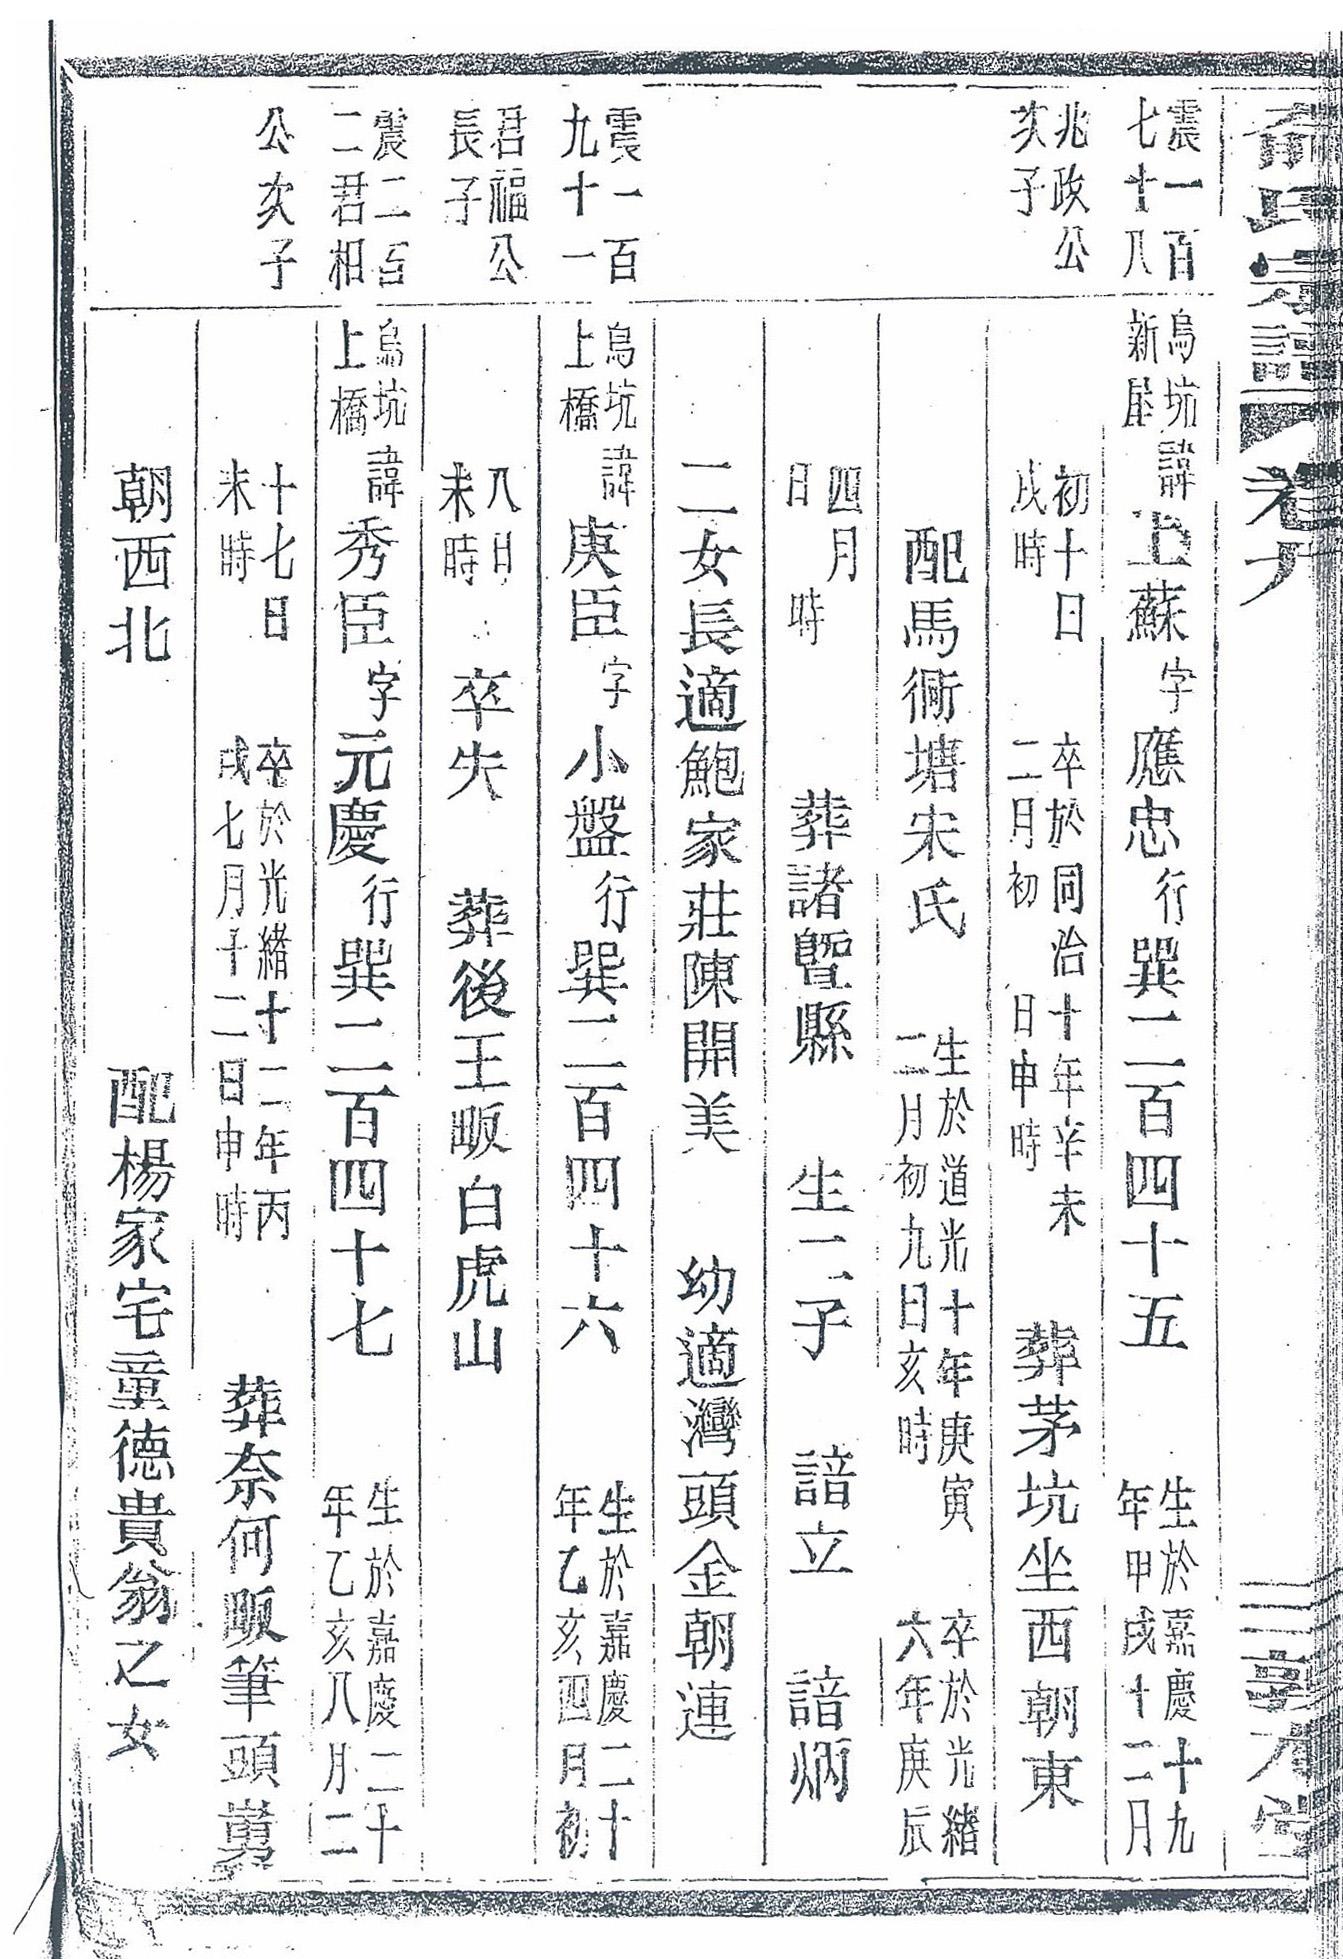 俞氏宗譜
卷六
三
敦
堂
震一百
七十八
兆政公
次子
震一百
九十一
君福公
長子
震二百
二君相
公次子
烏坑
新屋
諱上蘇字應忠行巽二百四十五
生於嘉慶十九
年甲戌十二月
初十日
戌時
卒於同治十年辛未
二月初 日申時
葬茅坑坐西朝東
配馬衕塘宋氏
生於道光十年庚寅
二月初九日亥時
卒於光緒
六年庚辰
四月
日 時
葬諸暨縣 生二子 諳立 諳炳
二女長適鮑家莊陳開美 幼適灣頭金朝連
烏坑
上橋
諱庚臣字小盤行巽二百四十六
生於嘉慶二十
年乙亥四月初
八日
未時
卒失 葬後王畈白虎山
烏坑
上橋
諱秀臣字元慶行巽二百四十七
生於嘉慶二十
年乙亥八月二
十七日
未時
卒於光緒十二年丙
戌七月十二日申時
葬奈何畈筆頭
朝西北 配楊家宅童德貴翁之女